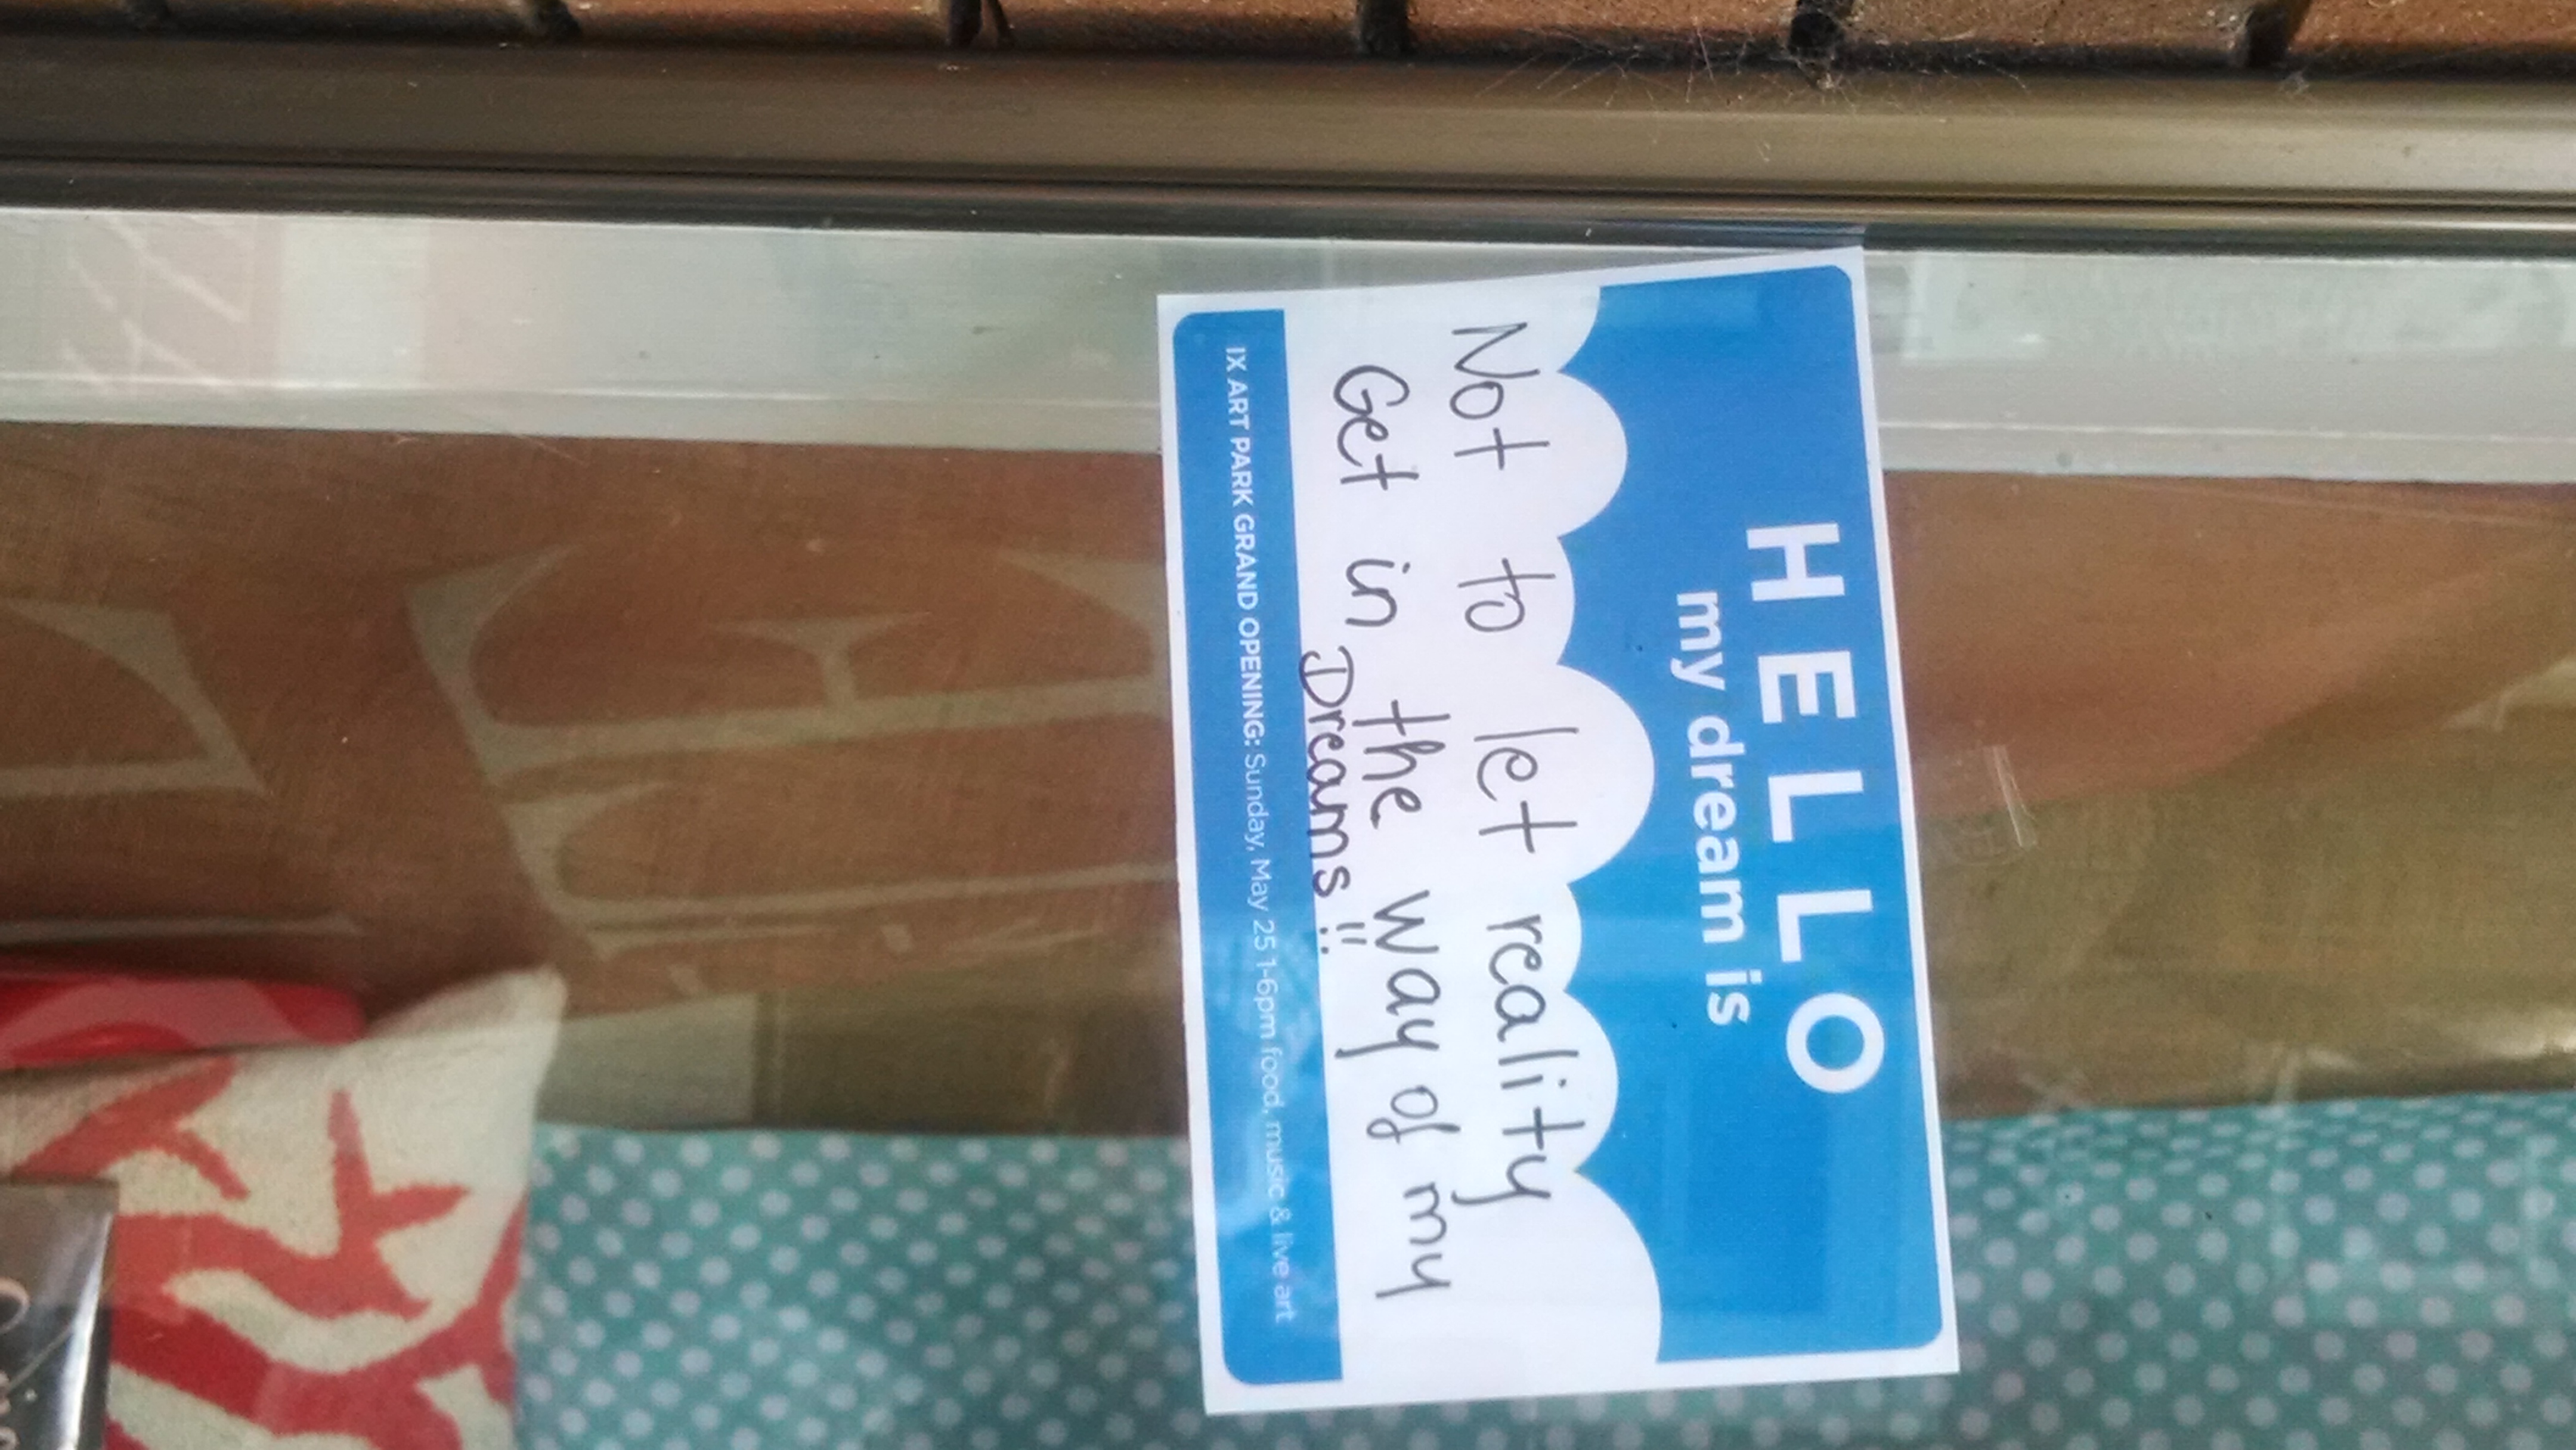 HELLO
my dream is
Not to let reality
Get in the way of my
Dreams!!
IX ART PARK GRAND OPENING: Sunday, May 25 1-6pm food, music & live art